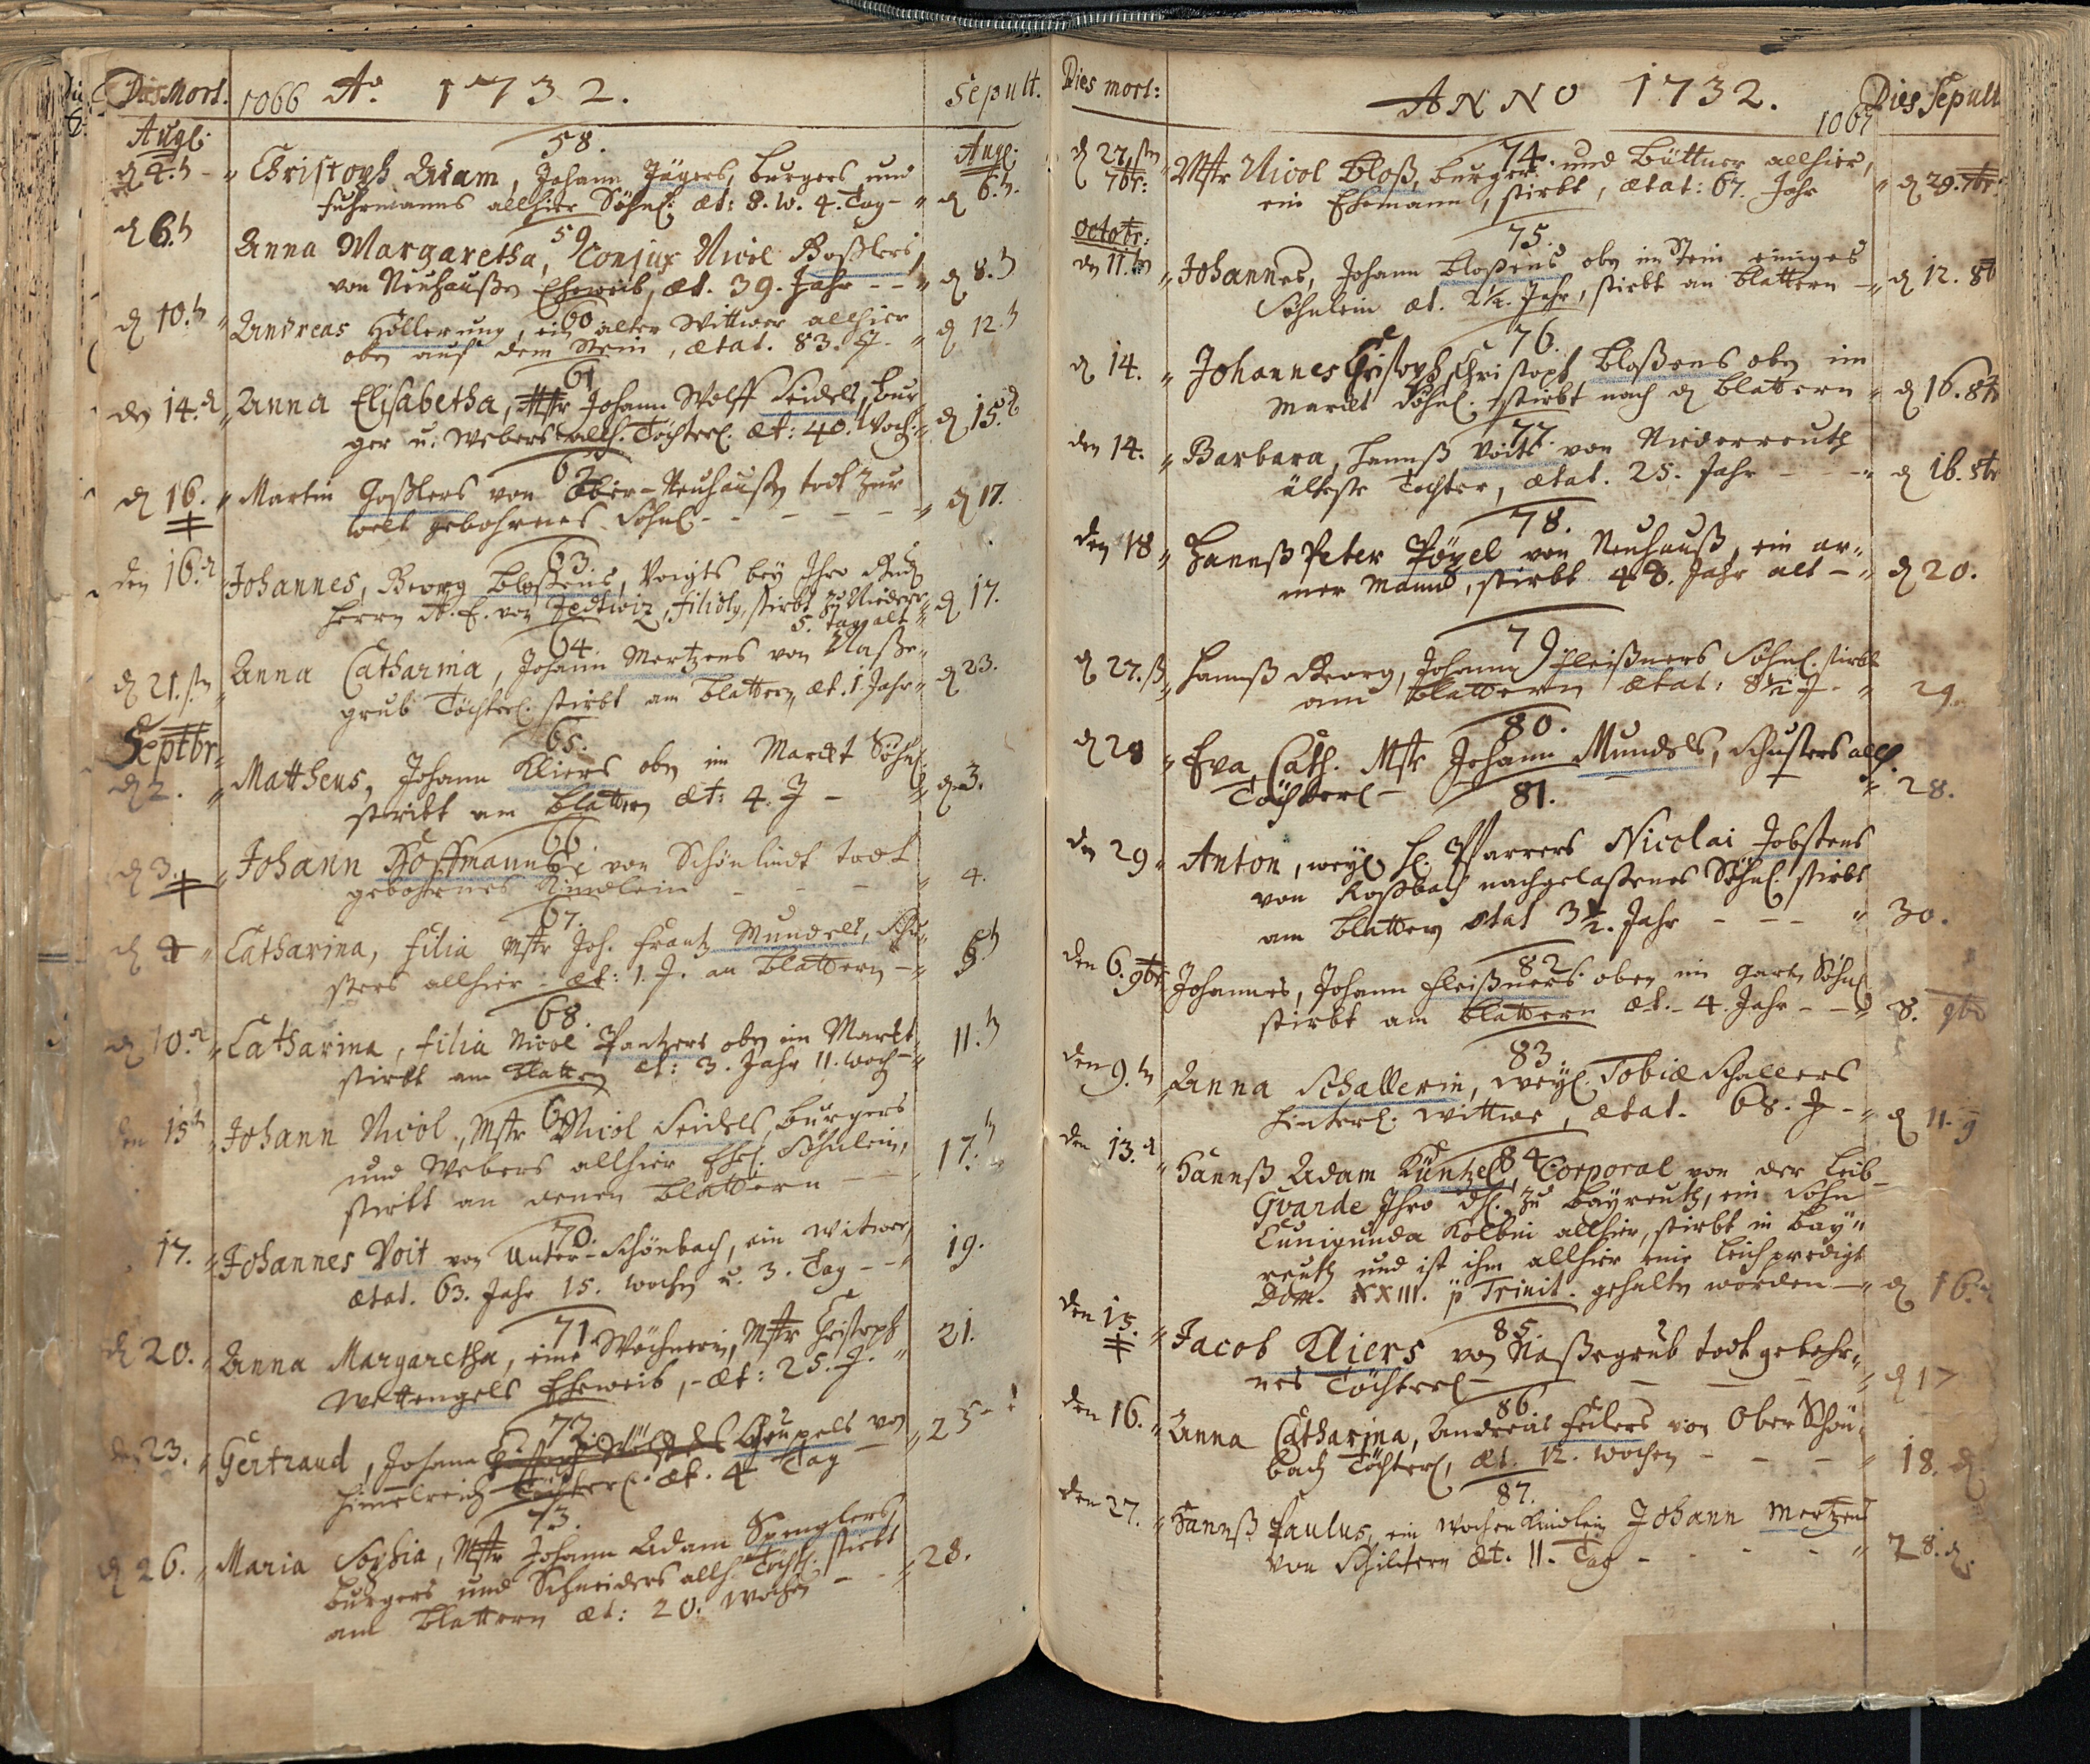 Dies Mort. 1066 Ao. 1732. Sepult.
Aug:
58.
Aug:
d 4.t " Christoph Adam, Johann Jägers, burgers und
fuhrmanns allhier Söhnl. æt: 8. W. 4. Tag - " d 6.t
59
d 6.t Anna Margaretha, Conjux Nicol
von Neuhaußen Eheweib, æt. 39. Jahr - - " d 8.t
60
d 10.t " Andreas Höllerung, ein alter Wittwer allhier
oben auf dem Stein, ætat. 83. J. " d 12.t
61
den 14. " Anna Elisabetha, Mstr Johann Wolff Seidels, bur
ger u. Webers allh. Töchterl. æt: 40. Woch. " d 15.
62
d 16. " Martin Goßlers von Ober-Neuhaußen todt zur
welt gebohrnes Söhnl. - - - - - " d 17.
63.
den 16. Johannes, Georg Bloßens, Voigts bey Ihro
Herrn von Zedtwiz, filiol, stirbt zu Nieder
5. tag alt " d 17.
64.
d 21. " Anna Catharina, Johann Mertzens von Naße-
grub Töchterl. stirbt am blattern, æt. 1. Jahr " d 23.
Septbr.
65.
d 2. " Mattheus, Johann Kliers oben im Marckt Söhnl.
stirbt am blattern æt: 4. J - " d. 3.
66
d 3. " Johann Hoffmanns von Schönlindt todt
gebohrnes Kindlein - - - " 4.
67.
d 4 " Catharina, filia Mstr Joh. Frantz Mundels, Schu-
sters allhier - æt: 1. J. an blattern - "
68.
d 10. " Catharina, filia Nicol Pantzers oben im Markt
stirbt am blattern æt: 3. Jahr 11. woch - " 11.t
69
den 15t " Johann Nicol, Mstr Nicol Seidels, burgers
und Webers allhier Ehel. Söhnlein,
stirbt an denen blattern - - " 17.t
70.
17. " Johannes Voit von Unter-Schönbach, ein witwer,
ætat. 63. Jahr 15. wochen u. 3. Tag - - " 19.
71
d 20. " Anna Margaretha, eine Wöchnerin, Mstr Christoph
Wettengels Eheweib, - æt: 25. J. " 21.
72.
den 23. " Gertraud, Johann Geupels von
Himmelreich Töchterl. æt. 4 Tag - " 25
73.
d 26. " Maria Sophia, Mstr Johann Adam Spenglers,
burgers und Schneiders allh. Töchterl. stirbt
am blattern æt: 20. wochen - - " 28.
Dies mort: ANNO 1732. 1067 Dies Sepult
74.
d 27. 7br: " Mstr Nicol Bloß, burger und Büttner allhier,
ein Ehemann, stirbt, ætat: 67. Jahr " d 29. 7br.
Octobr:
75.
den 11. " Johannes, Johann Bloßens oben im Stein einziges
Söhnlein æt. 2½. Jahr, stirbt an blattern - " d 12. 8b
76.
d 14. " Johannes Christoph, Christoph Bloßens oben im
Marckt Söhnl. stirbt nach d blattern " d 16. 8br
77.
den 14. " Barbara, Hannß Voits von Niederreuth
älteste Tochter, ætat. 25. Jahr - - - " d 16. 8br
78.
den 18 " Hannß Peter Pözel von Neuhauß, ein ar-
mer Mann, stirbt 48. Jahr alt - " d 20.
79
d 27. " Hannß Georg, Johann Fleißners Söhnl. stirbt
am blattern ætat: 8½ J. " 29.
80.
d 28 " Eva Cath. Mstr Johann Mundels, Schusters allh.
Töchterl - " 28.
81.
den 29 " Anton, weyl. H. Pfarrers Nicolai Jobstens
von Roßbach nachgelaßenes Söhnl. stirbt
am blattern ætat 3½. Jahr - - - " 30.
82.
den 6. 9br Johannes, Johann Fleißners oben im Garten Söhnl
stirbt am blattern æt. - 4. Jahr - - " 8. 9b
83.
den 9.t " Anna Schallerin, weyl. Tobiæ Schallers
hinterl. Wittwe, ætat. 68. J - " d 11. 9
84.
den 13. " Hannß Adam Küntzel, Corporal von der Leib-
Gvarde Ihro zu Bayreuth, ein Sohn
Cunigunda Kolbin allhier, stirbt in Bay-
reuth und ist ihm allhier eine Leichpredigt
Dom. XXIII. p Trinit. gehalten worden - " d 16.
85.
den 15. " Jacob Kliers von Naßegrub todt gebohr-
nes Töchterl - - - " d 17
86.
den 16. " Anna Catharina, Andreas Feilers von Ober Schön-
bach Töchterl, æt. 12. wochen - - - " 18. d
87.
den 27. " Hannß Paulus, ein Wochen Kindlein Johann Mertzens
von Schildern æt. 11. Tag - - - - " 28. d